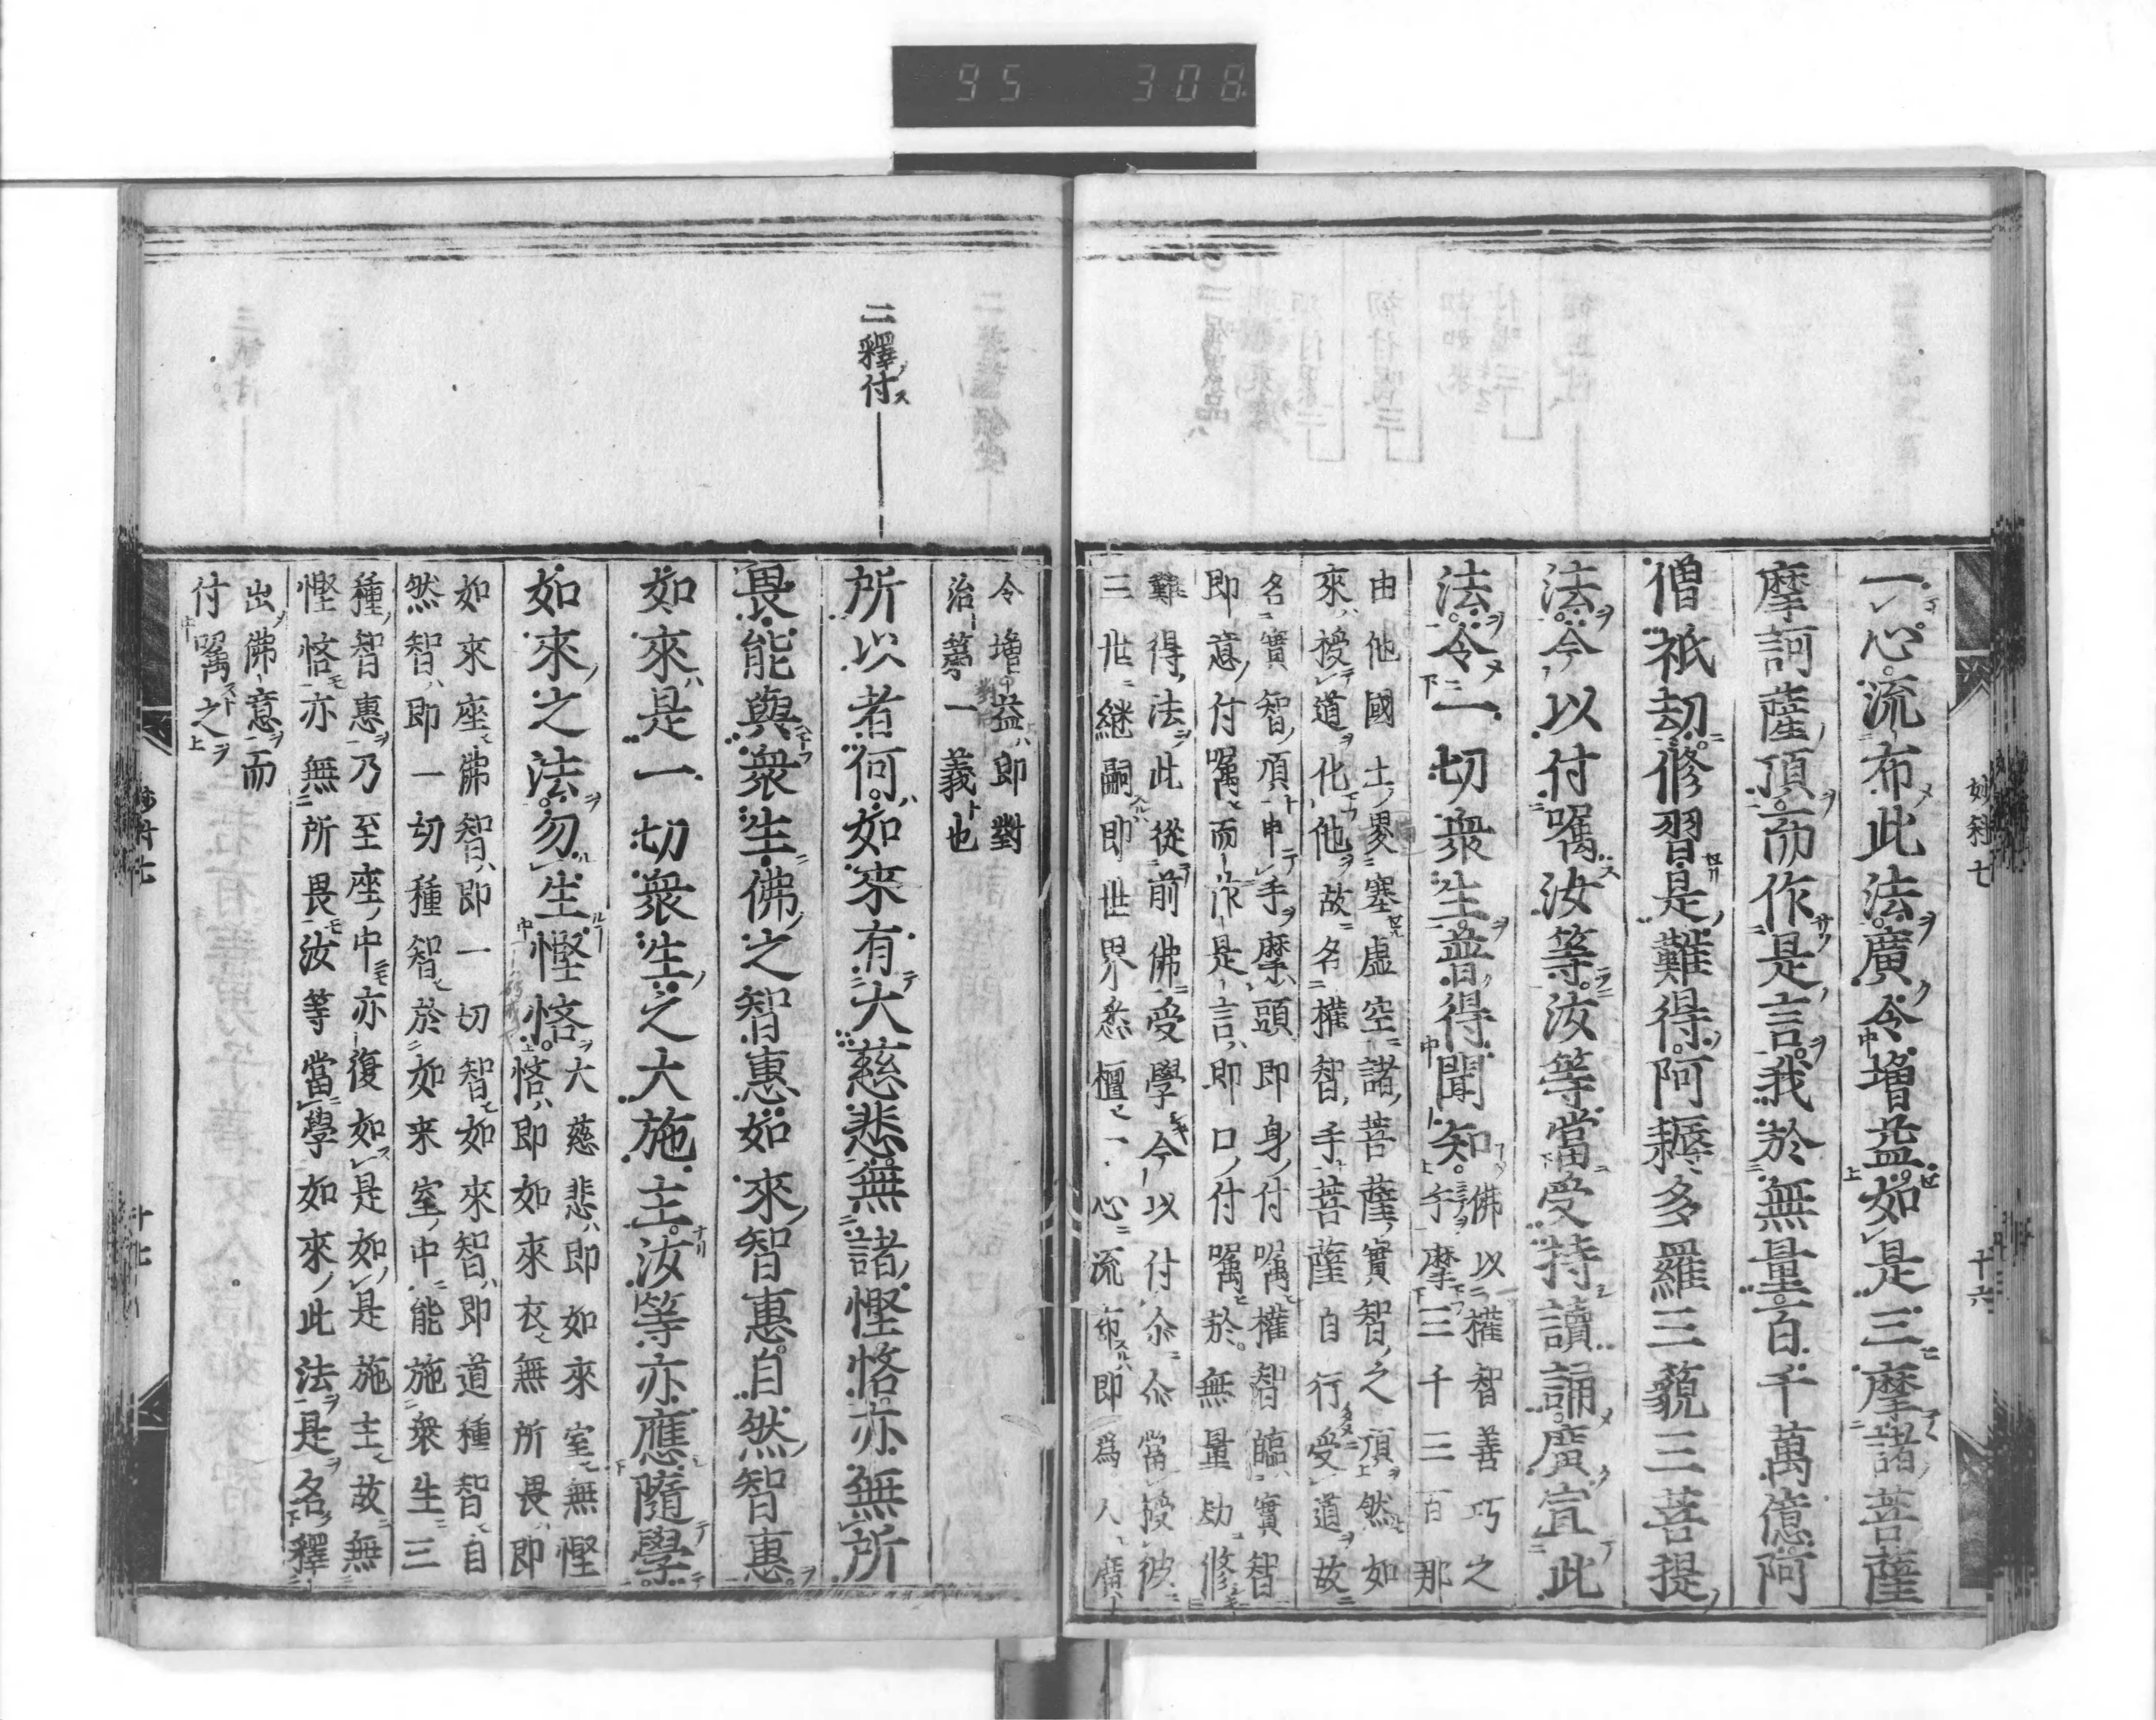 95 308
妙科七
十六
一心流布此法廣令增益如是三摩諸菩薩
摩訶薩頂而作是言我於無量百千萬億阿
僧祇劫修習是難得阿耨多羅三藐三菩提
法今以付囑汝等汝等當受持讀誦廣宣此
法令一切衆生普得聞知
佛以權智善巧之
手摩三千三百那
由他國土畧塞虛空諸菩薩實智之頂然如
來授道化他故名權智手菩薩自行受道故
名實智頂申手摩頭即身付囑權智臨實智
即意付囑而作是言即口付囑於無量劫修
難得法此從前佛受學今以付尒尒當授彼
三世繼嗣即世界悉檀一心流布即爲人廣
令增益即對
治籌一義也
二釋付
所以者何如來有大慈悲無諸慳悋亦無所
畏能與衆生佛之智惠如來智惠自然智惠
如來是一切衆生之大施主汝等亦應隨學
如來之法勿生慳悋
大慈悲即如來室無慳
悋即如來衣無所畏即
如來座佛智即一切智如來智即道種智自
然智即一切種智於如来室中能施衆生三
種智惠乃至座中亦復如是如是施主故無
慳悋亦無所畏汝等當學如來此法是名釋
出佛意而
付囑之
十七